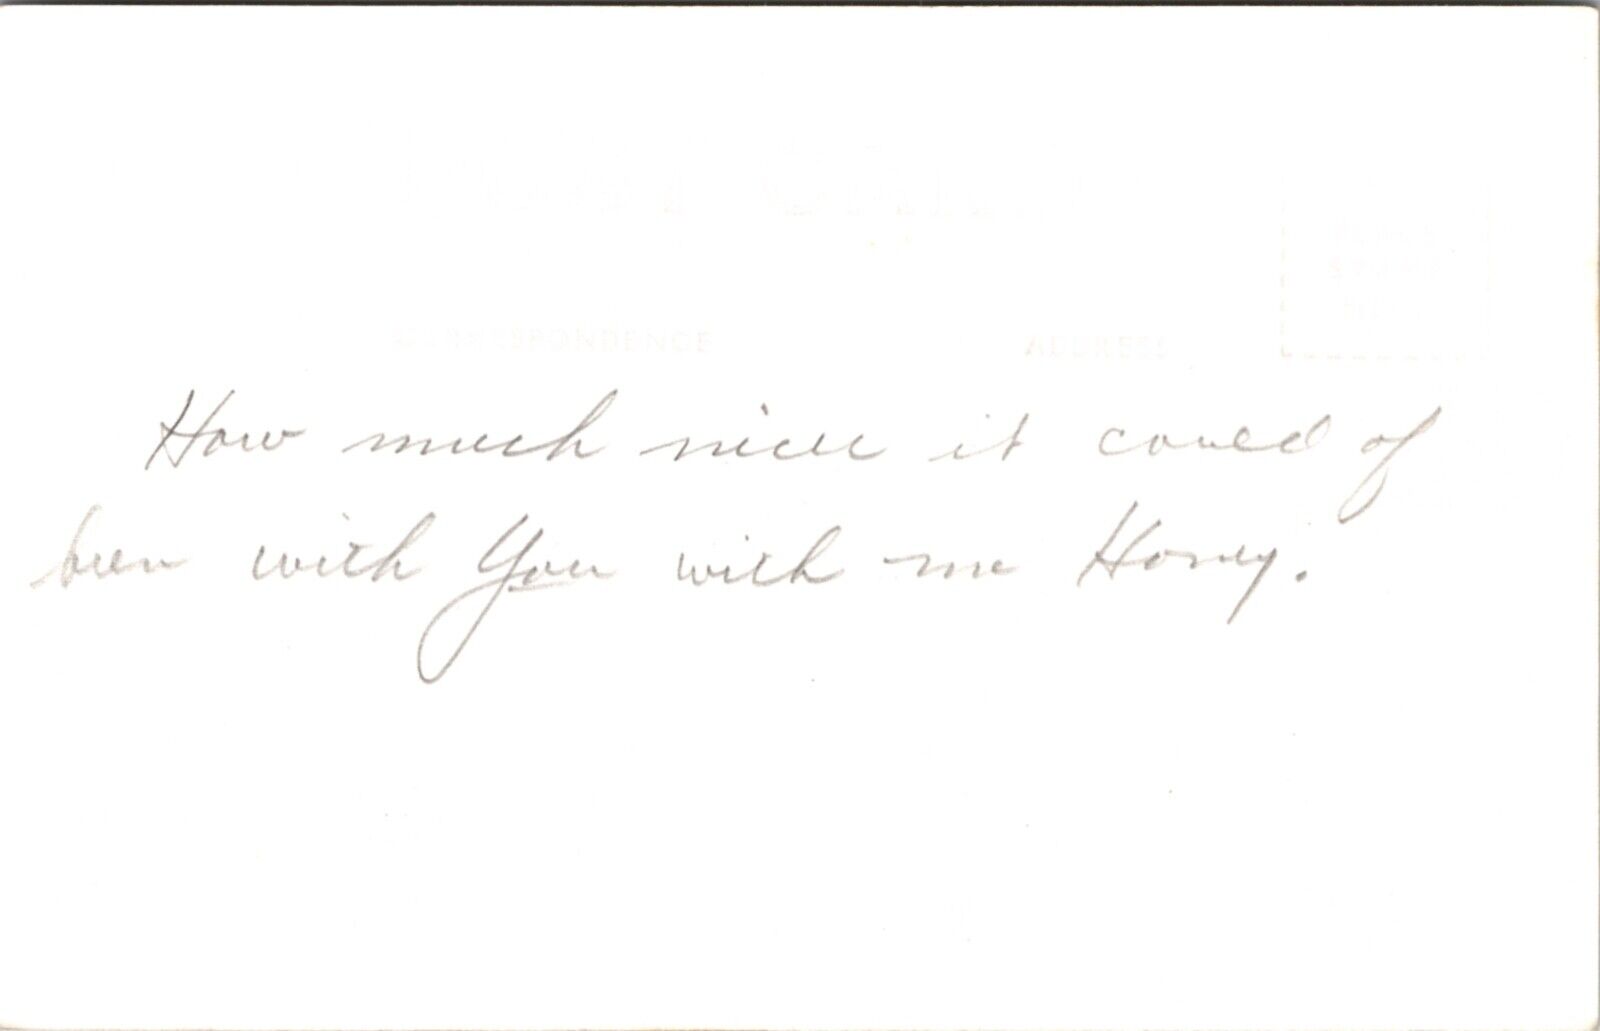 POST CARD
PLACE
STAMP
HERE
CORRESPONDENCE
ADDRESS
How much nicer it could of
been with You with me Honey.